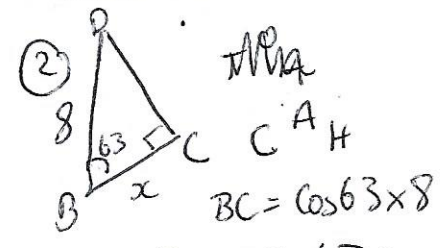 ②
D
8
63
C
x
B
C A H
BC = Cos63×8